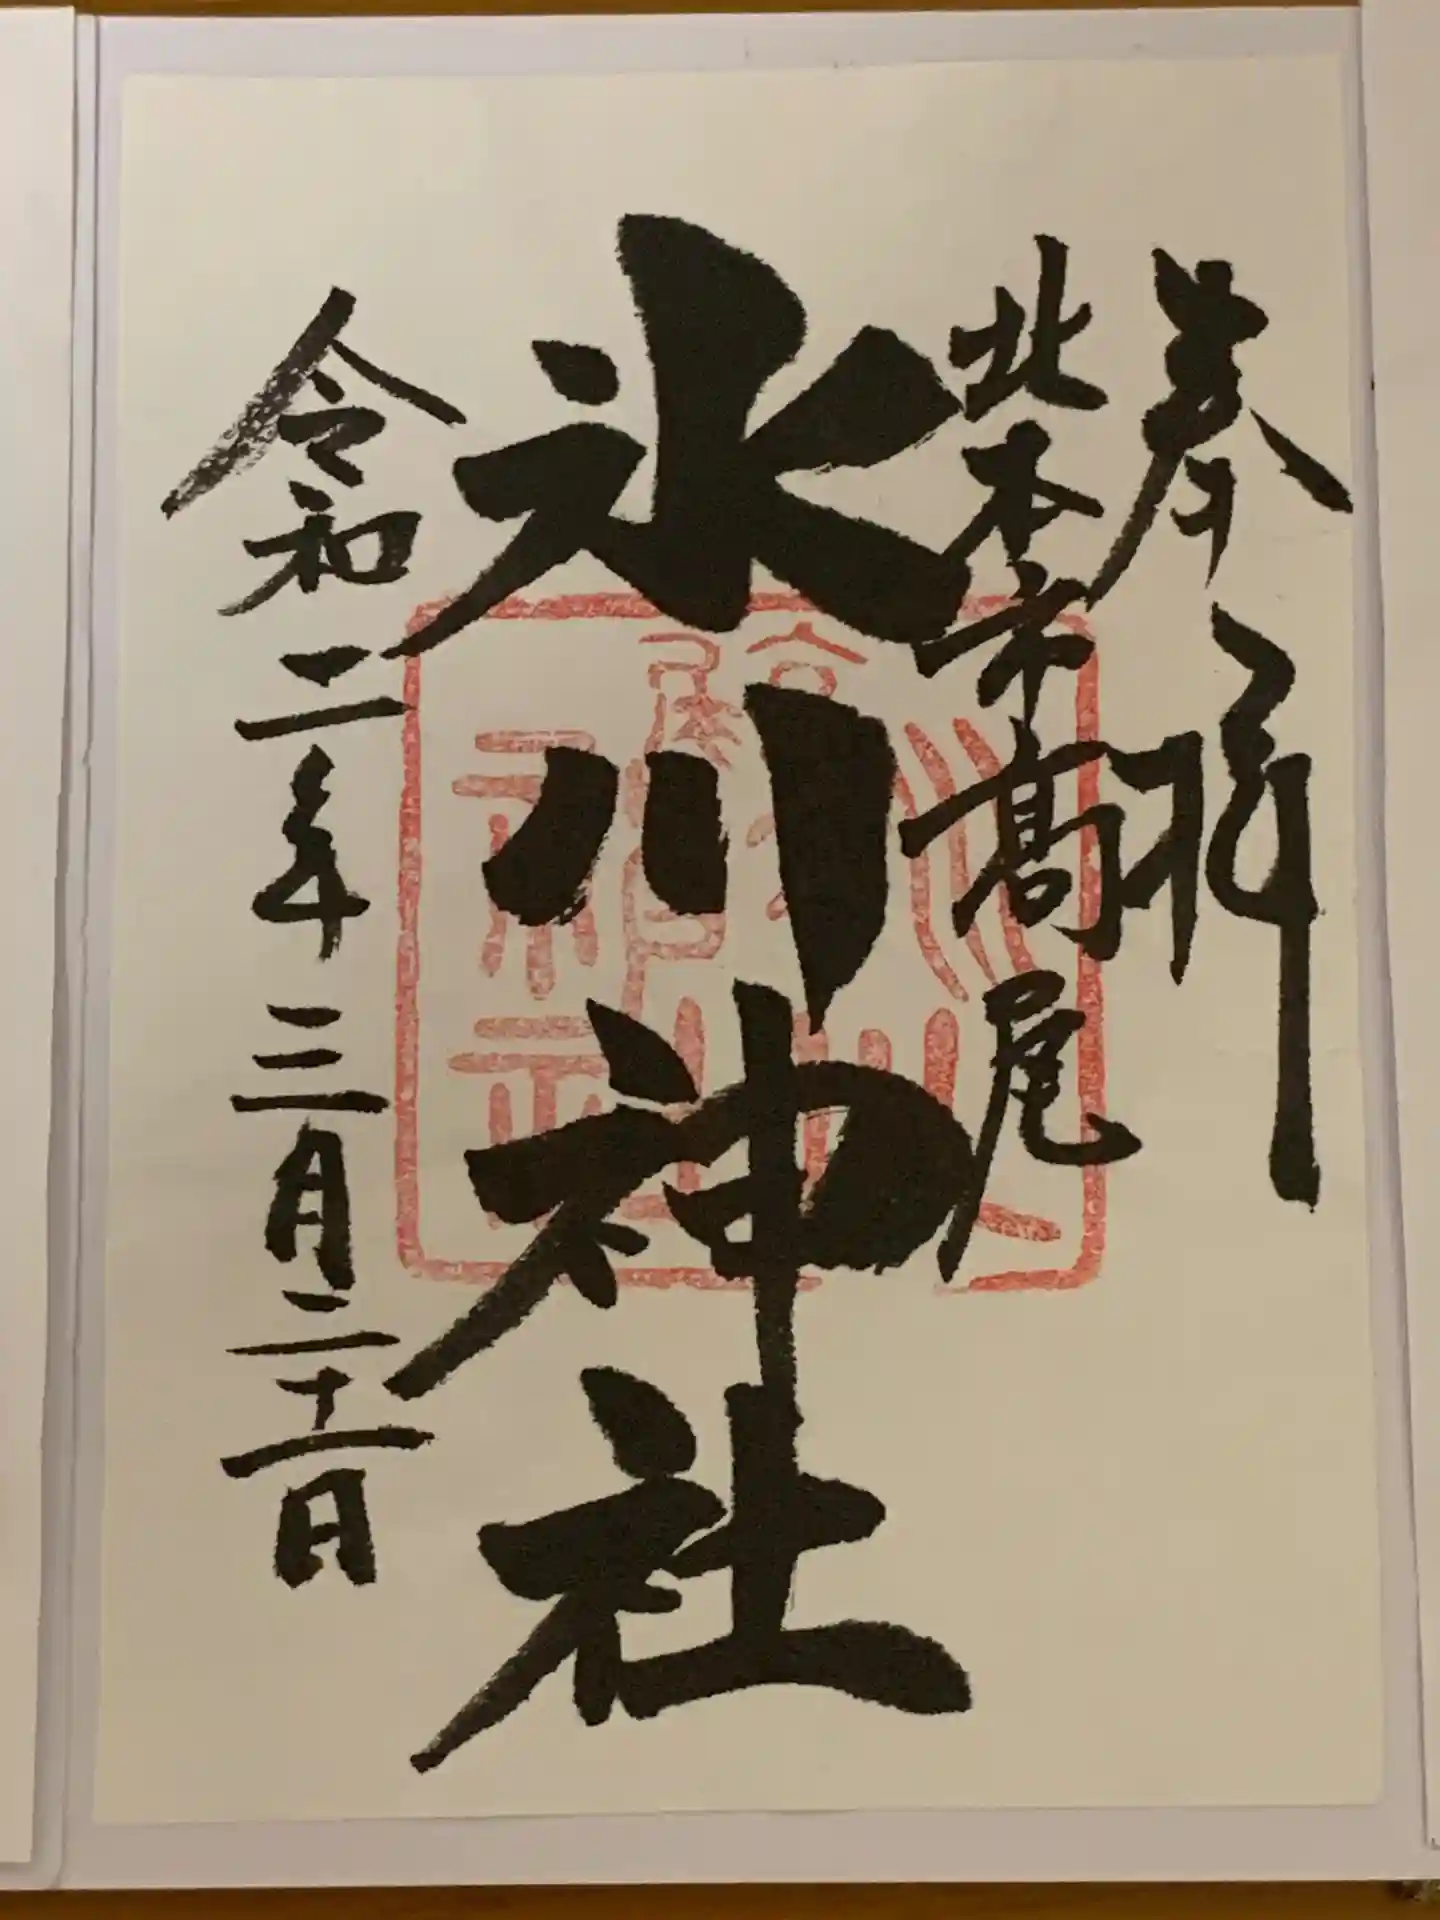 奉拝
北本市髙尾
氷川神社
令和二年三月二十一日